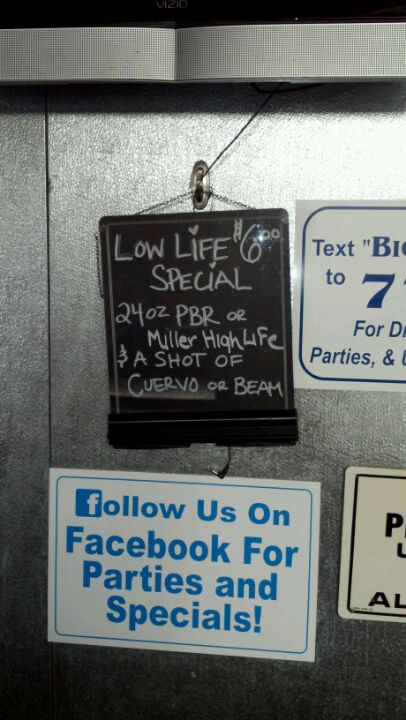 VIZIO
LOW LiFE $6.00
SPECiAL
24OZ PBR OR
Miller High LiFe
& A SHOT OF
CUERVO OR BEAM
Text "BI
to 7
For D
Parties, &
follow Us On
Facebook For
Parties and
Specials!
P
AL